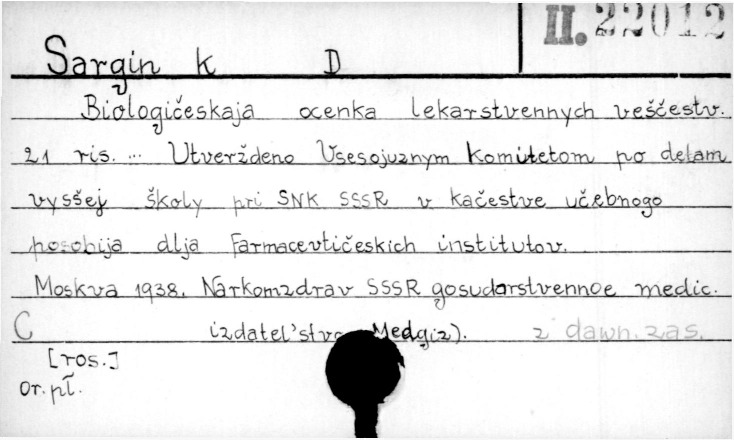 II. 22012
Sargin K D
Biologičeskaja ocenka lekarstvennych veščestv.
21 ris. ... Utverždeno Vsesojuznym Komitetom po delam
vysšej školy pri SNK SSSR v kačestve učebnogo
posobija dlja farmacevtičeskich institutov.
Moskva 1938. Narkomzdrav SSSR gosudarstvennoe medic.
C izdatel'stvo Medgiz). z dawn. zas.
[ros.]
or. pł.